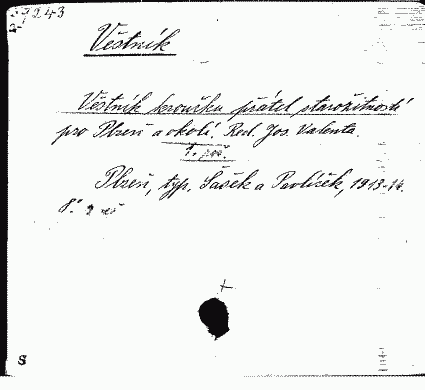 27243
Věstník
Věstník kroužku přátel starožitností
pro Plzeň a okolí. Red. Jos. Valenta.
1. roč.
Plzeň, typ. Sašek a Pavlíček, 1913-14.
8°. 2 seš
S